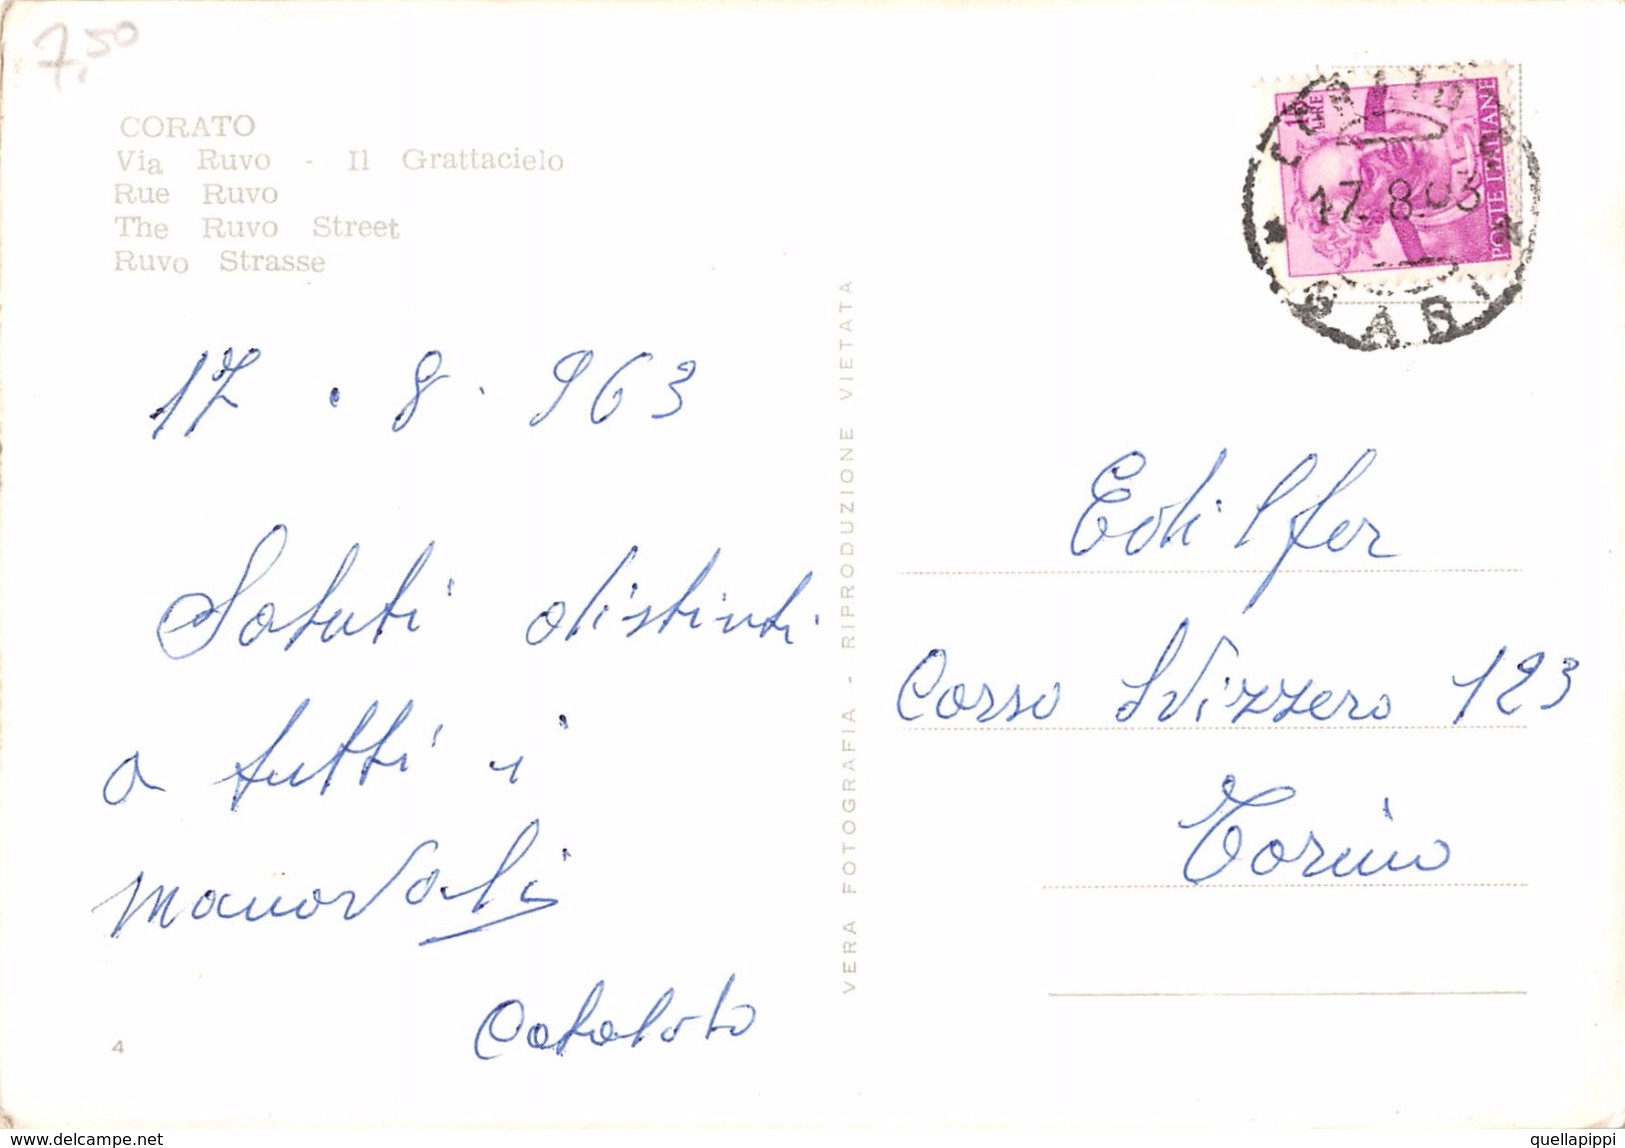 7,50
CORATO
Via Ruvo - Il Grattacielo
Rue Ruvo
The Ruvo Street
Ruvo Strasse
17 . 8 . 963
Saluti distinti
a tutti i
manovali
4
VERA FOTOGRAFIA - RIPRODUZIONE VIETATA
15 LIRE
POSTE ITALIANE
17.8.63
BARI
Edilfer
Corso Svizzero 123
Torino
www.delcampe.net
quellapippi